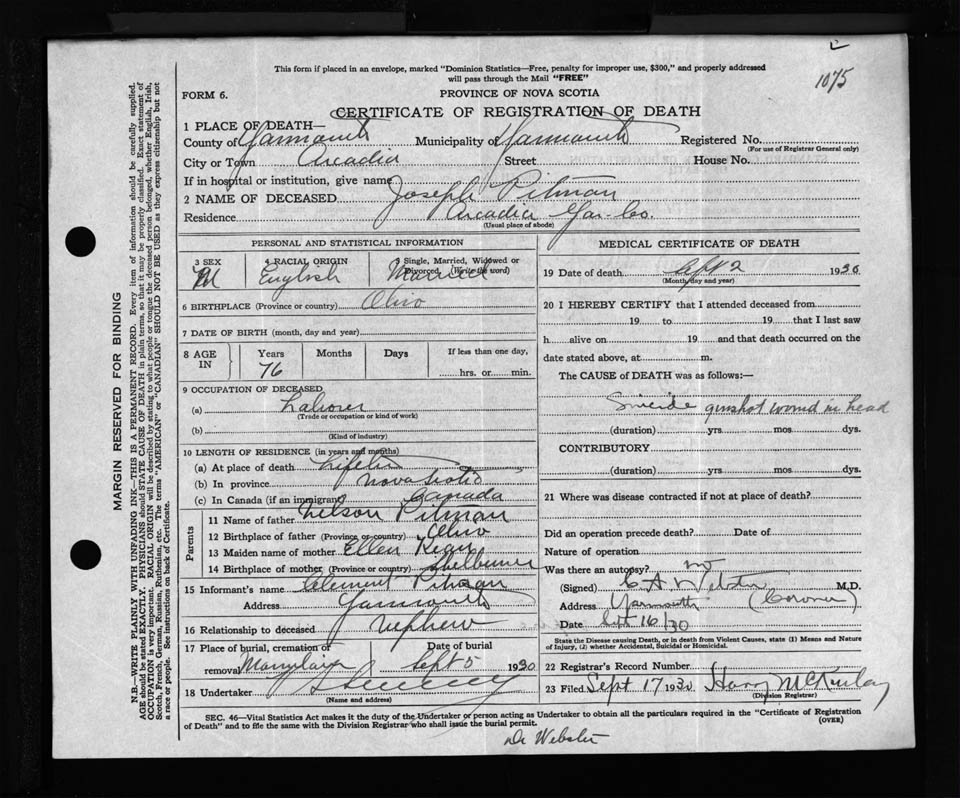 1075
This form if placed in an envelope, marked "Dominion Statistics—Free, penalty for improper use, $300," and properly addressed
will pass through the Mail "FREE"
FORM 6.
PROVINCE OF NOVA SCOTIA
CERTIFICATE OF REGISTRATION OF DEATH
1 PLACE OF DEATH—
County of Yarmouth Municipality Yarmouth Registered No.
(For use of Registrar General only)
City or Town Arcadia Street House No.
If in hospital or institution, give name
2 NAME OF DECEASED Joseph Pitman
Residence Arcadia Yar-Co.
(Usual place of abode)
PERSONAL AND STATISTICAL INFORMATION
3 SEX 4 RACIAL ORIGIN 5 Single, Married, Widowed or Divorced, (Write the word)
M English Married
6 BIRTHPLACE (Province or country) Ohio
7 DATE OF BIRTH (month, day and year)
8 AGE IN Years Months Days If less than one day,
76 hrs. or min.
9 OCCUPATION OF DECEASED
(a) Labourer
(Trade or occupation or kind of work)
(b)
(Kind of industry)
10 LENGTH OF RESIDENCE (in years and months)
(a) At place of death
(b) In province Nova Scotia
(c) In Canada (if an immigrant) Canada
Parents
11 Name of father Nelson Pitman
12 Birthplace of father (Province or country) Ohio
13 Maiden name of mother Ellen
14 Birthplace of mother (Province or country) Shelburne
15 Informant's name Clement Pitman
Address Yarmouth
16 Relationship to deceased nephew
17 Place of burial, cremation or removal Date of burial
Sept 5 1930
18 Undertaker
(Name and address)
MEDICAL CERTIFICATE OF DEATH
19 Date of death Sept 2 1930
(Month, day and year)
20 I HEREBY CERTIFY that I attended deceased from
19 to 19 that I last saw
h alive on 19 and that death occurred on the
date stated above, at m.
The CAUSE of DEATH was as follows:—
Suicide gunshot wound in head
(duration) yrs. mos. dys.
CONTRIBUTORY
(duration) yrs. mos. dys.
21 Where was disease contracted if not at place of death?
Did an operation precede death? Date of
Nature of operation
Was there an autopsy? no
(Signed) C A Webster M.D.
Address Yarmouth (Coroner)
Date Sept 16/30
State the Disease causing Death, or in death from Violent Causes, state (1) Means and Nature
of Injury, (2) whether Accidental, Suicidal or Homicidal.
22 Registrar's Record Number
23 Filed Sept 17 1930 Harry McKinlay
(Division Registrar)
SEC. 46—Vital Statistics Act makes it the duty of the Undertaker or person acting as Undertaker to obtain all the particulars required in the "Certificate of Registration
of Death" and to file the same with the Division Registrar who shall issue the burial permit.
(OVER)
Dr Webster
MARGIN RESERVED FOR BINDING
N.B.—WRITE PLAINLY WITH UNFADING INK—THIS IS A PERMANENT RECORD. Every item of information should be carefully supplied.
AGE should be stated EXACTLY. PHYSICIANS should STATE CAUSE OF DEATH in plain terms, so that it may be properly classified. Exact statement of
OCCUPATION is very important. RACIAL ORIGIN will be described by stating to what people or tongue the deceased person belonged, whether English, Irish,
Scotch, French, German, Russian, Ruthenian, etc. The terms "AMERICAN" or "CANADIAN" SHOULD NOT BE USED as they express citizenship but not
a race or people. See instructions on back of Certificate.